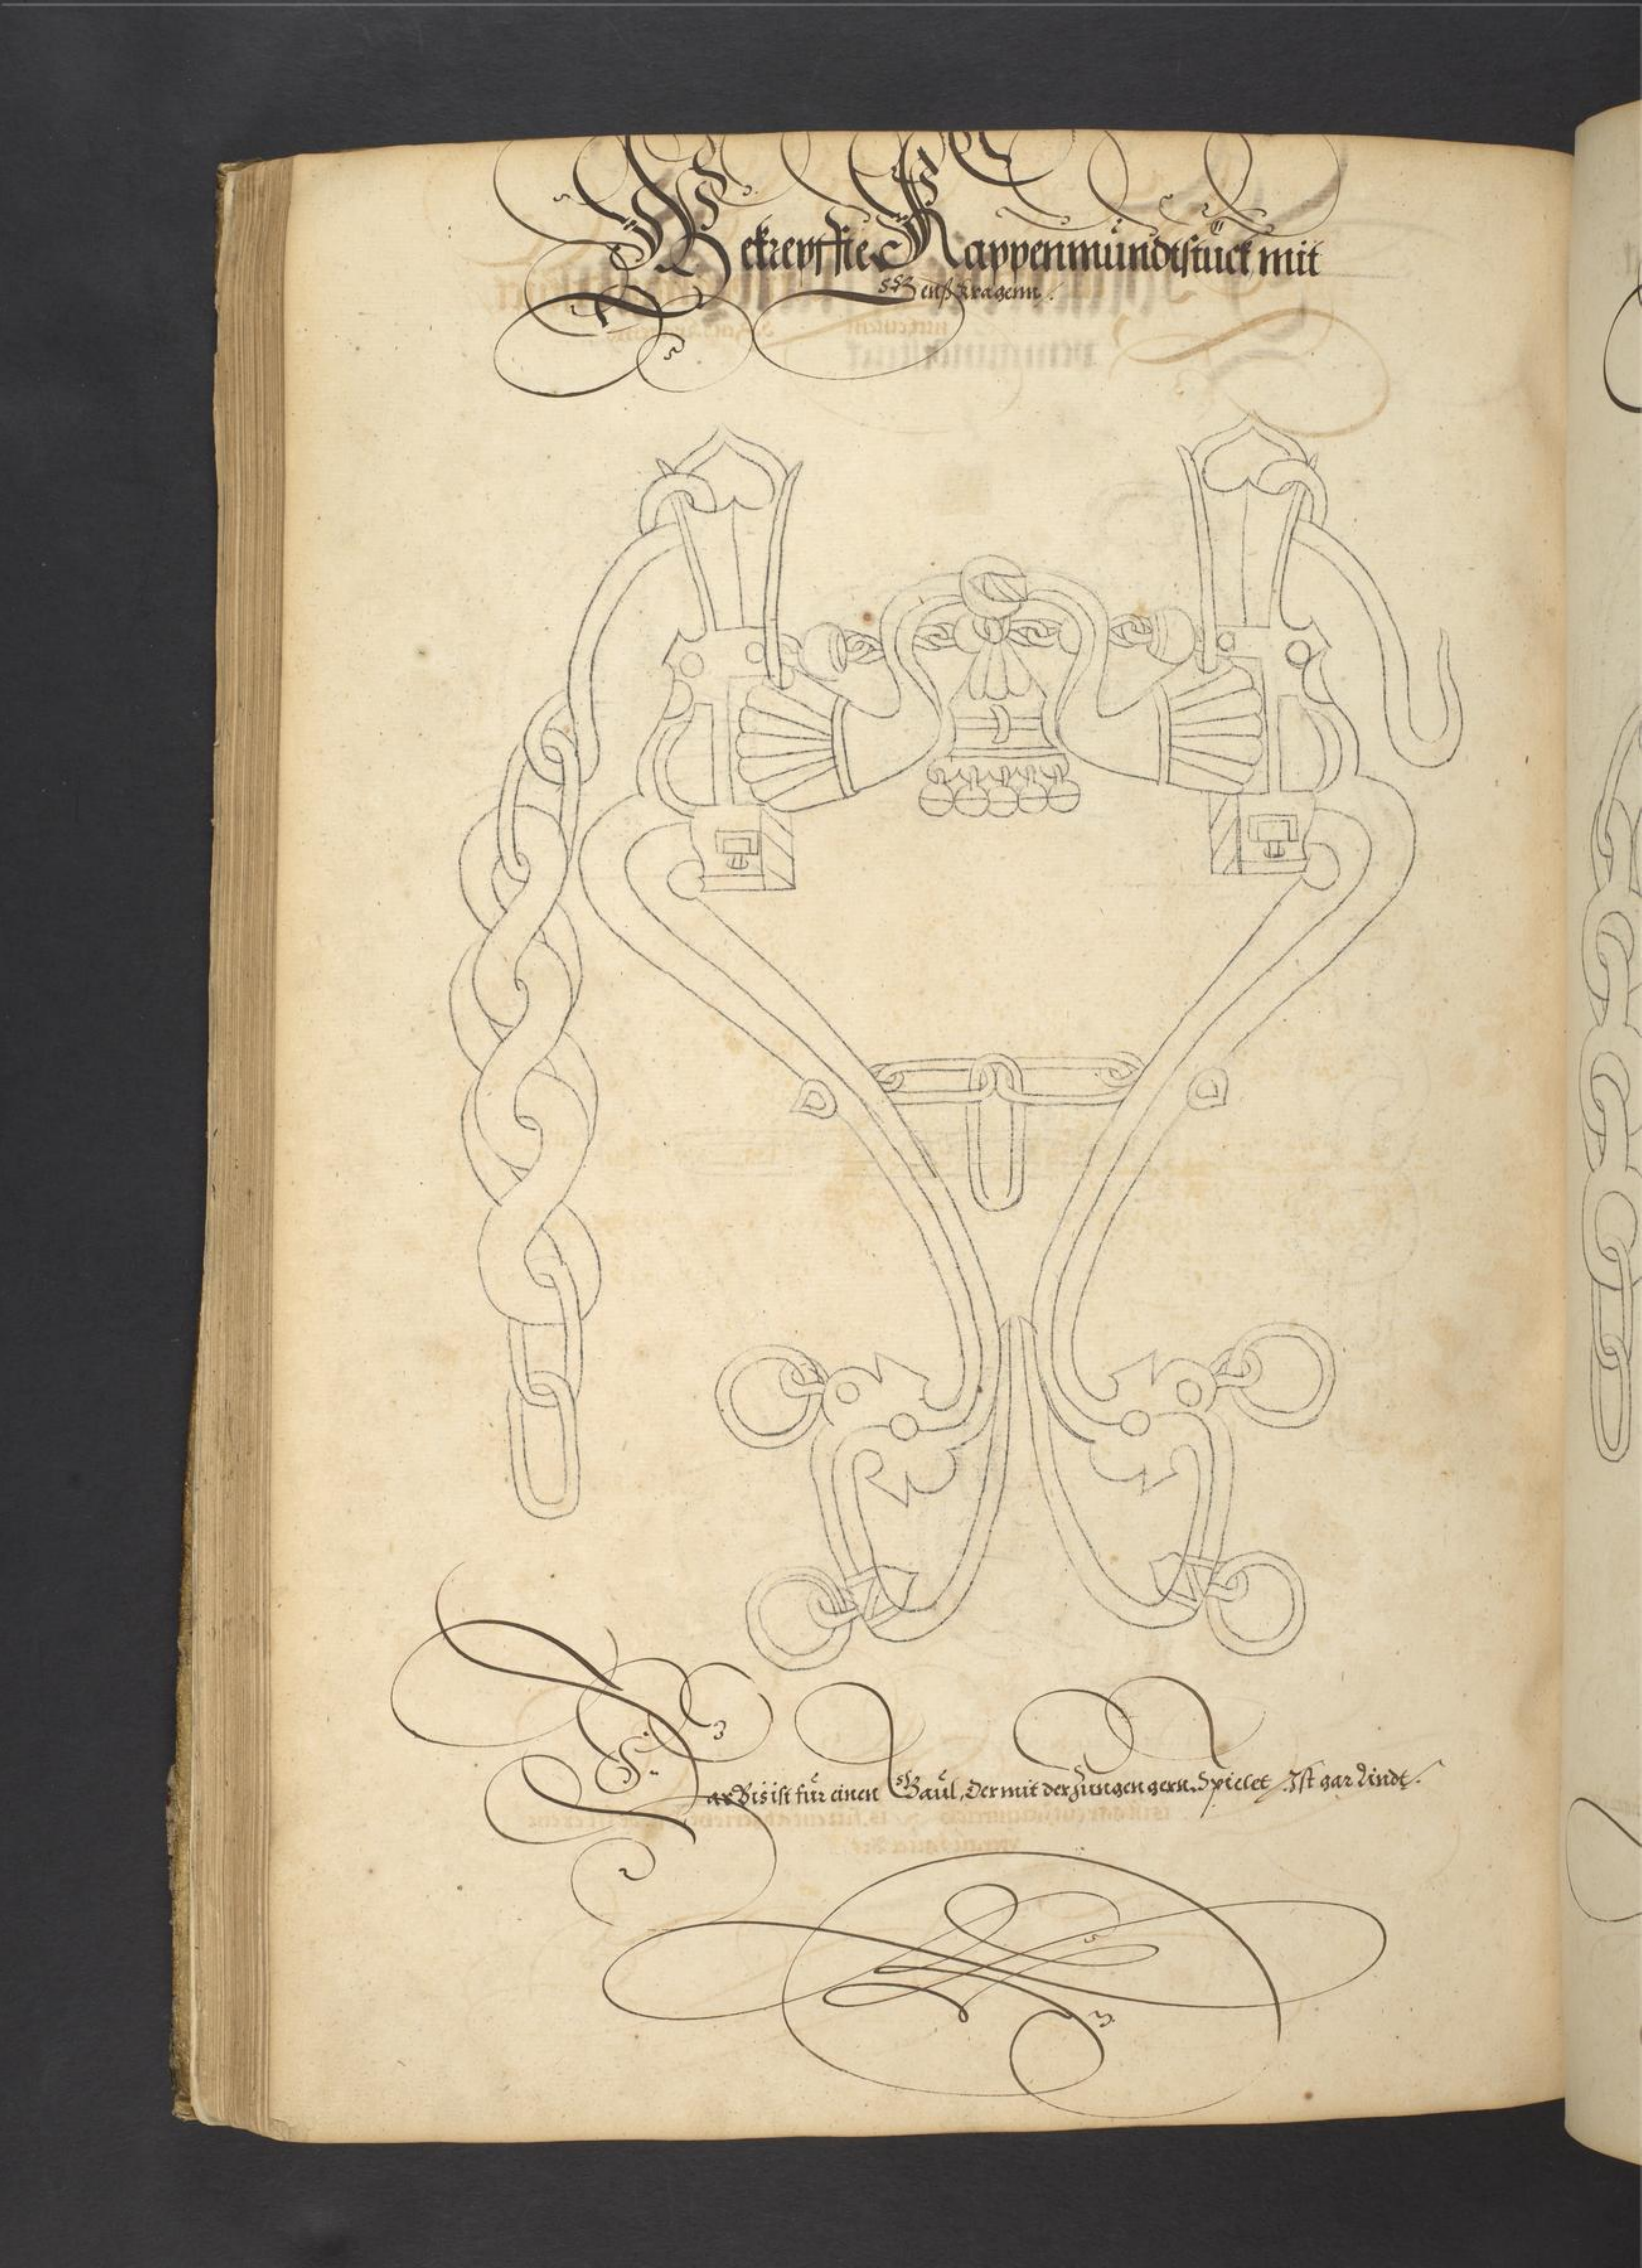 Gekrepffte Kappenmundtstuck mit
Genßkragenn.
Das Bis ist für einen Gaul, Der mit der Zungen gern Spielet, Ist gar Lindt.